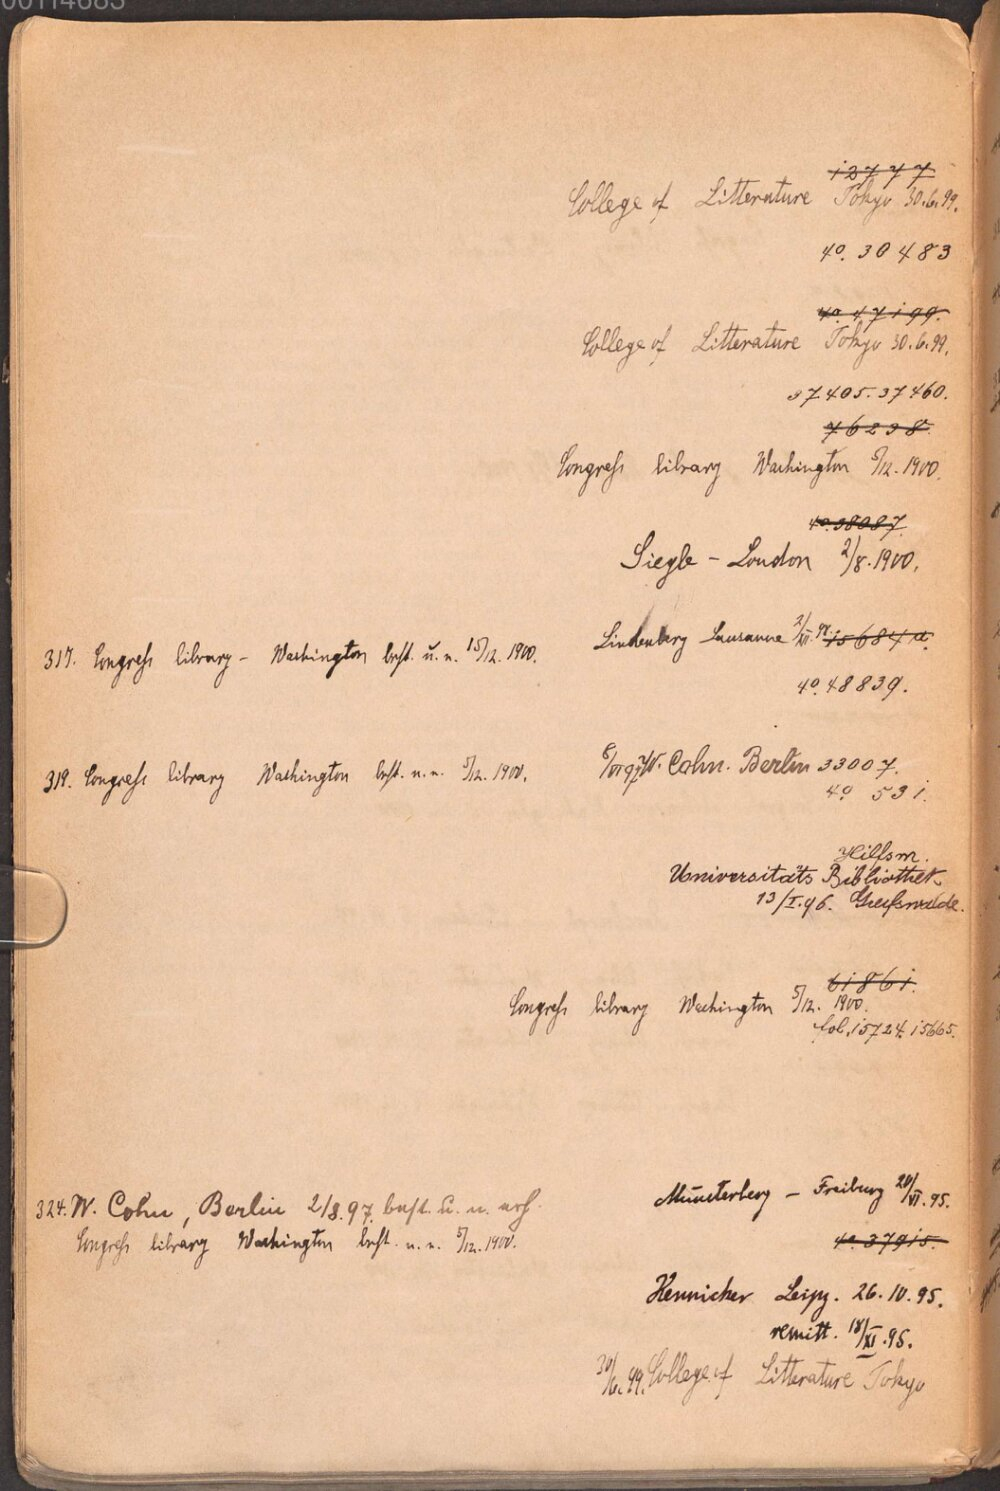 00114683
12777
College of Litterature Tokyo 30.6.99.
4°. 30483
4°. 47199.
College of Litterature Tokyo 30.6.99.
37405. 37460.
76238.
Congreſs library Washington 5/12. 1900.
4°. 38087.
Siegle – London 2/8. 1900.
Lindenberg Lausanne 15684 a.
317. Congreſs library – Washington best. u. n. 15/12. 1900.
4°. 48839.
W. Cohn. Berlin 33007.
319. Congreſs library Washington best. u. n. 5/12. 1900.
4° 531.
Hilfsm.
Universitäts Bibliothek
13/I.96. Greifswalde.
61861.
Congreſs library Washington 5/12. 1900.
fol. 15724. 15665.
324. W. Cohn, Berlin 2/8.97. best. u. n. erh.
Münsterberg – Freiburg 20/VI.95.
Congreſs library Washington best. u. n. 5/12. 1900.
4°. 37915.
Hennicker Leipz. 26.10.95.
remitt. 18/XI.95.
30/6. 99. College of Litterature Tokyo